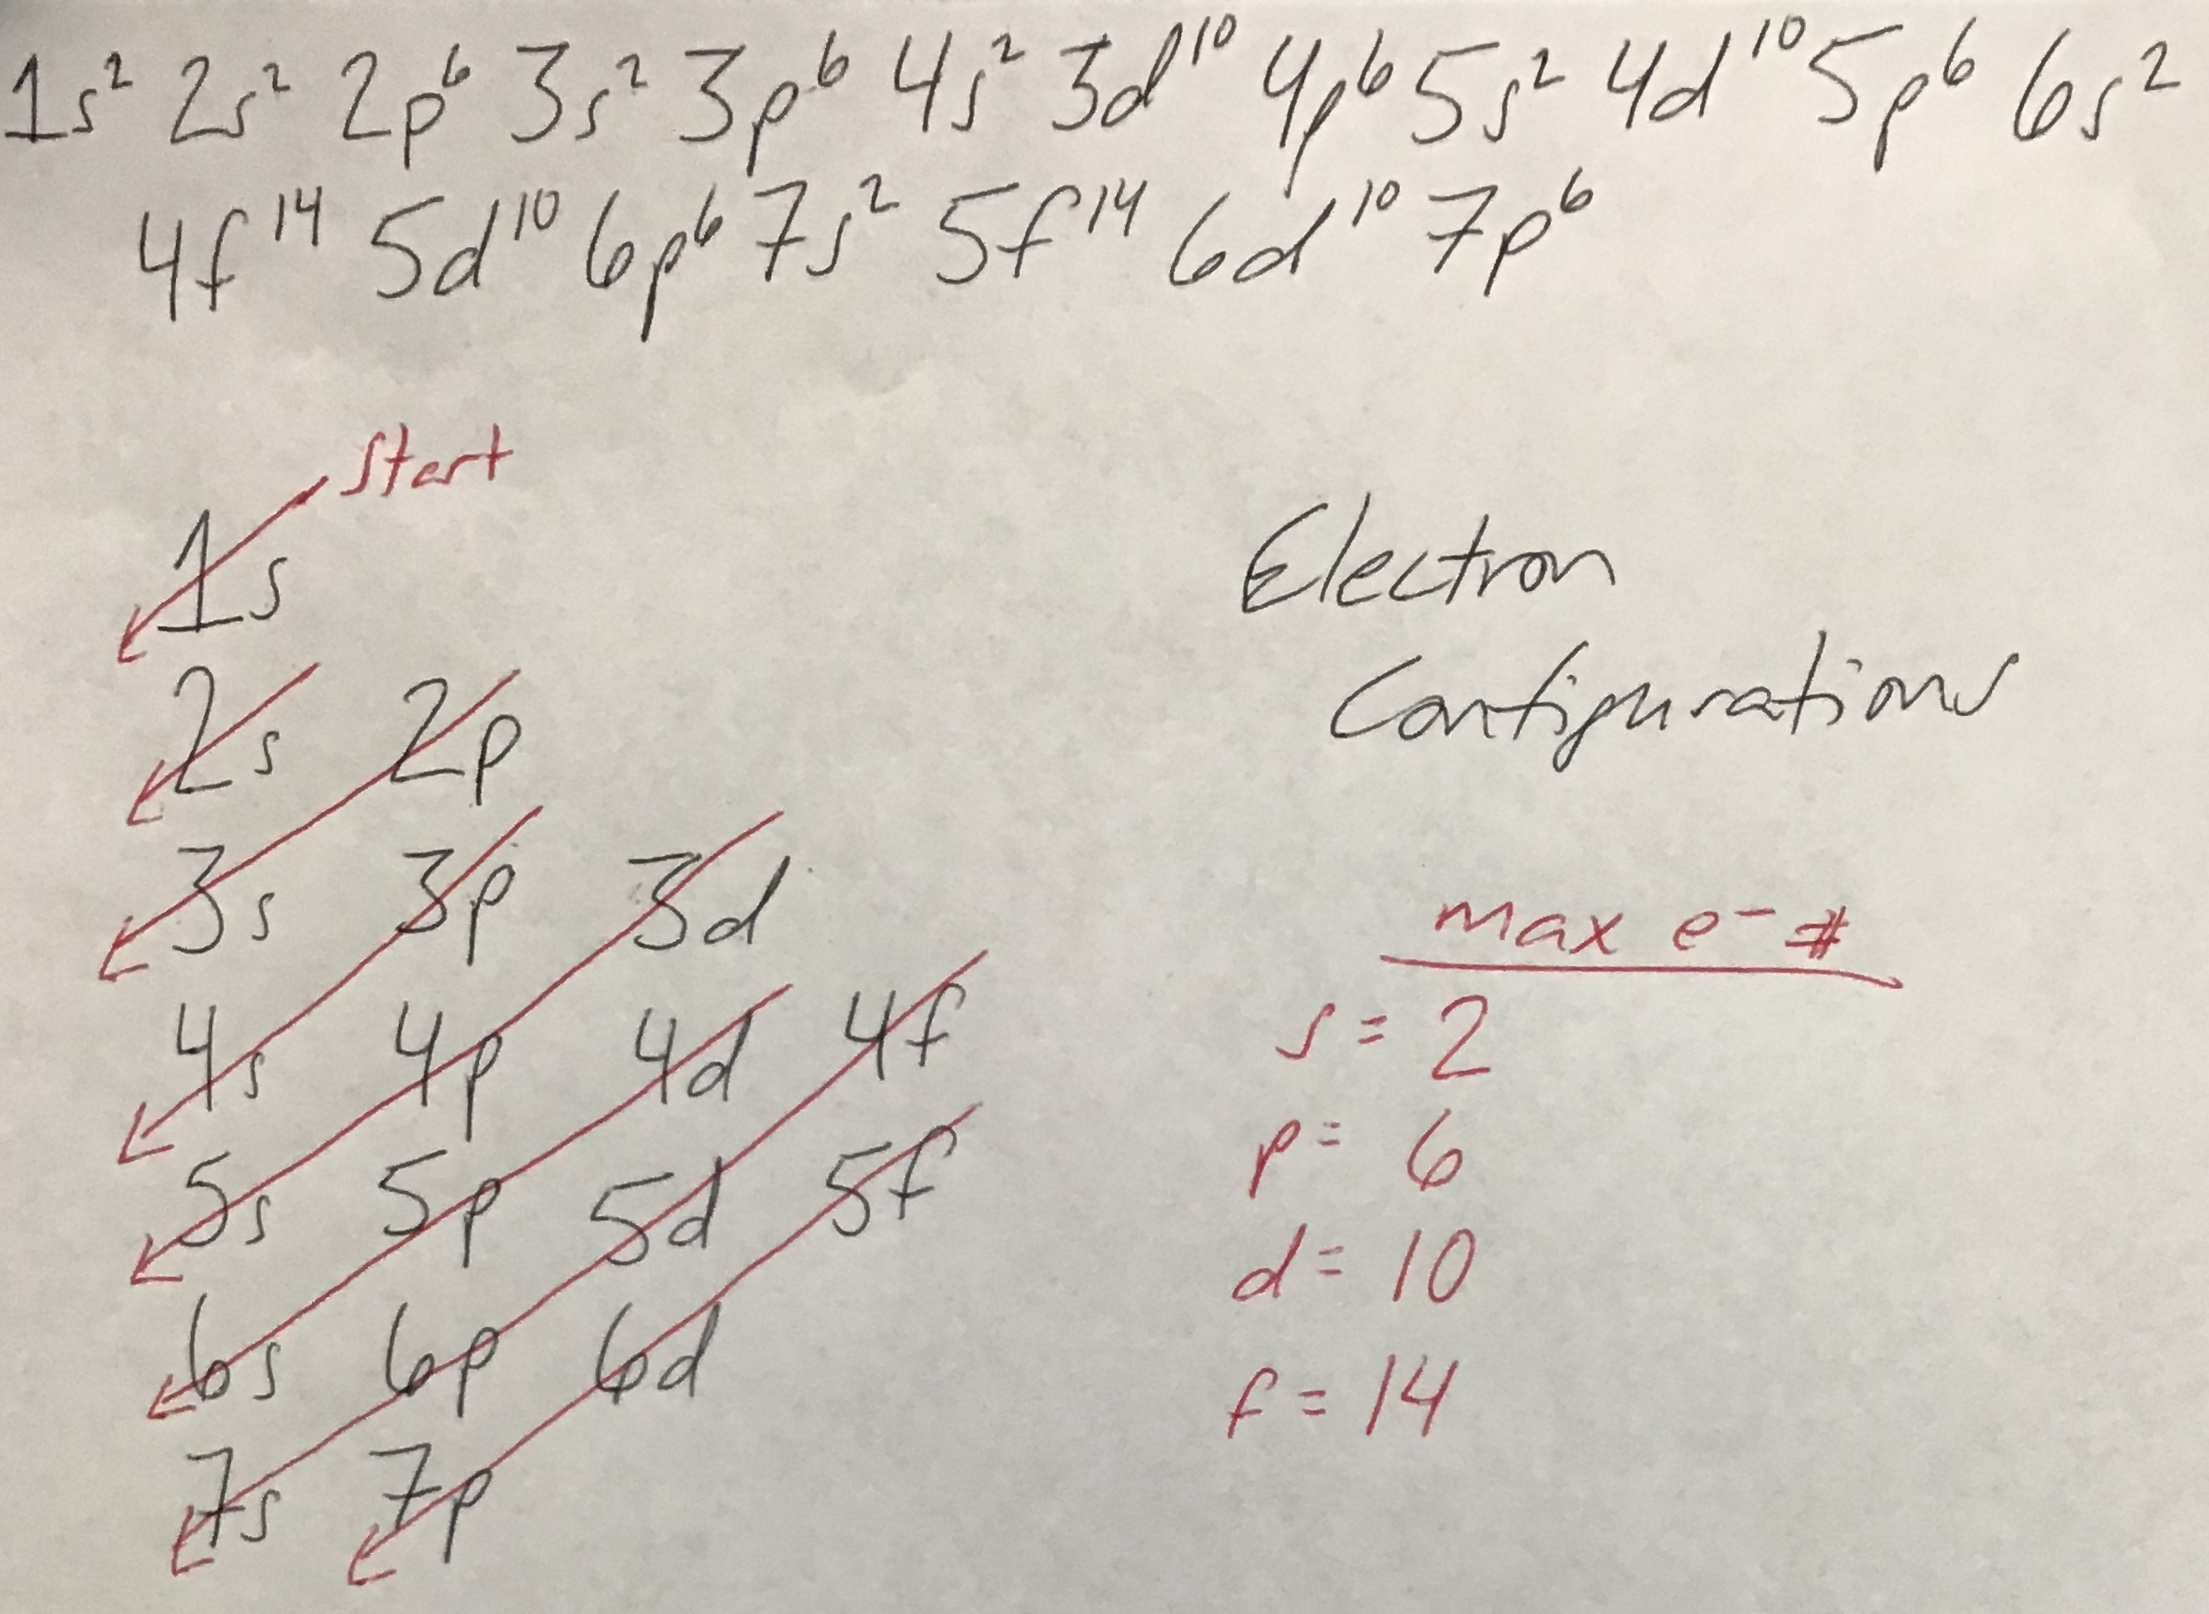 1s² 2s² 2p⁶ 3s² 3p⁶ 4s² 3d¹⁰ 4p⁶ 5s² 4d¹⁰ 5p⁶ 6s²
4f¹⁴ 5d¹⁰ 6p⁶ 7s² 5f¹⁴ 6d¹⁰ 7p⁶
Start
1s
2s 2p
3s 3p 3d
4s 4p 4d 4f
5s 5p 5d 5f
6s 6p 6d
7s 7p
Electron
Configurations
max e⁻ #
s = 2
p = 6
d = 10
f = 14